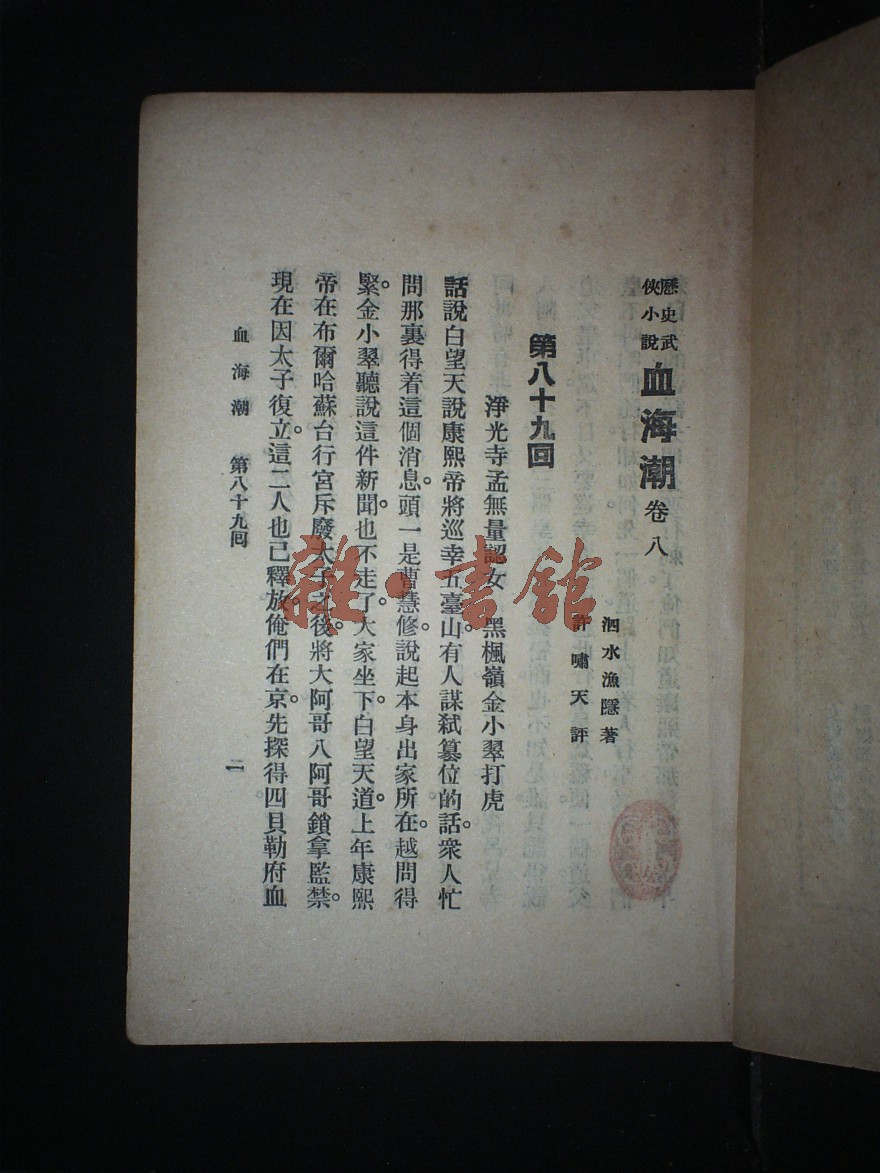 歷史武
俠小說
血海潮 卷八
泗水漁隱著
許嘯天評
第八十九回
淨光寺孟無量認女 黑楓嶺金小翠打虎
話說白望天說康熙帝將巡幸五臺山有人謀弒篡位的話。衆人忙
問那裏得着這個消息。頭一是曹慧修說起本身出家所在。越問得
緊。金小翠聽說這件新聞。也不走了。大家坐下。白望天道。上年康熙
帝在布爾哈蘇台行宮斥廢太子之後。將大阿哥八阿哥鎖拿監禁。
現在因太子復立。這二人也已釋放。俺們在京。先探得四貝勒府血
血海潮 第八十九回 一
雜·書館